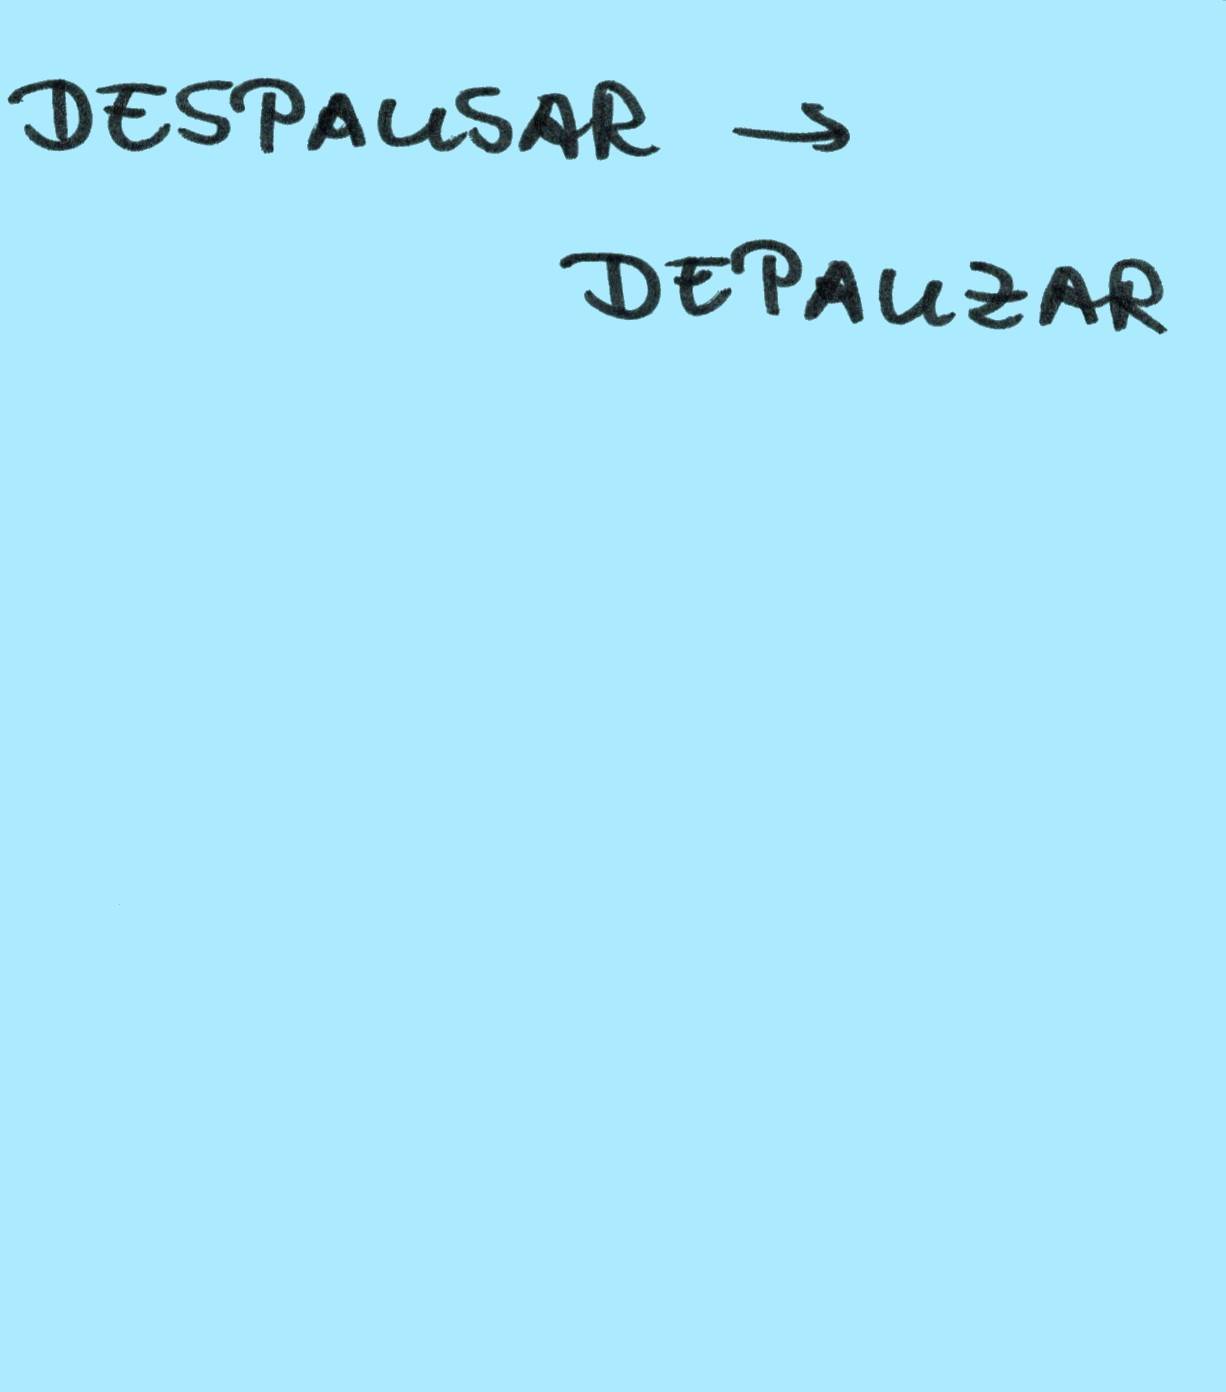 DESPAUSAR →
DEPAUZAR